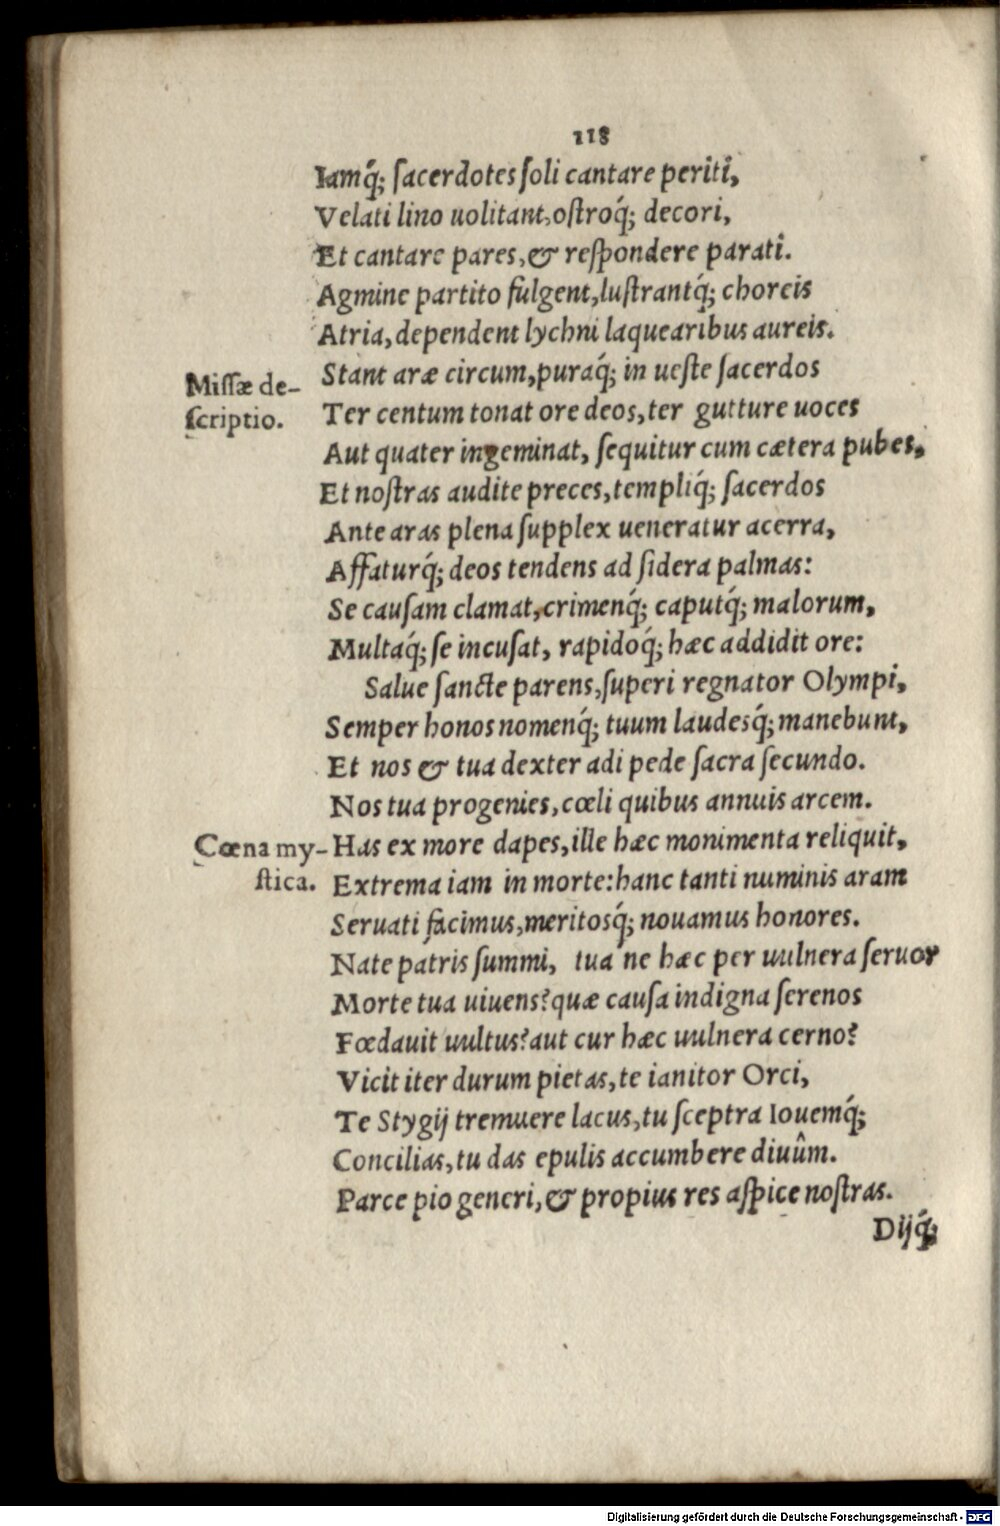 118
Iamq́; ſacerdotes ſoli cantare periti,
Velati lino uolitant, oſtroq́; decori,
Et cantare pares, & reſpondere parati.
Agmine partito fulgent, luſtrantq́; choreis
Atria, dependent lychni laquearibus aureis.
Miſſæ de-
ſcriptio.
Stant aræ circum, puraq́; in ueſte ſacerdos
Ter centum tonat ore deos, ter gutture uoces
Aut quater ingeminat, ſequitur cum cætera pubes,
Et noſtras audite preces, templiq́; ſacerdos
Ante aras plena ſupplex ueneratur acerra,
Affaturq́; deos tendens ad ſidera palmas:
Se cauſam clamat, crimenq́; caputq́; malorum,
Multaq́; ſe incuſat, rapidoq́; hæc addidit ore:
Salue ſancte parens, ſuperi regnator Olympi,
Semper honos nomenq́; tuum laudesq́; manebunt,
Et nos & tua dexter adi pede ſacra ſecundo.
Nos tua progenies, cœli quibus annuis arcem.
Cœna my-
ſtica.
Has ex more dapes, ille hæc monimenta reliquit,
Extrema iam in morte: hanc tanti numinis aram
Seruati facimus, meritosq́; nouamus honores.
Nate patris ſummi, tua ne hæc per uulnera ſeruor
Morte tua uiuens? quæ cauſa indigna ſerenos
Fœdauit uultus? aut cur hæc uulnera cerno?
Vicit iter durum pietas, te ianitor Orci,
Te Stygij tremuere lacus, tu ſceptra Iouemq́;
Concilias, tu das epulis accumbere diuûm.
Parce pio generi, & propius res aſpice noſtras.
Dijq́;
Digitalisierung gefördert durch die Deutsche Forschungsgemeinschaft - DFG